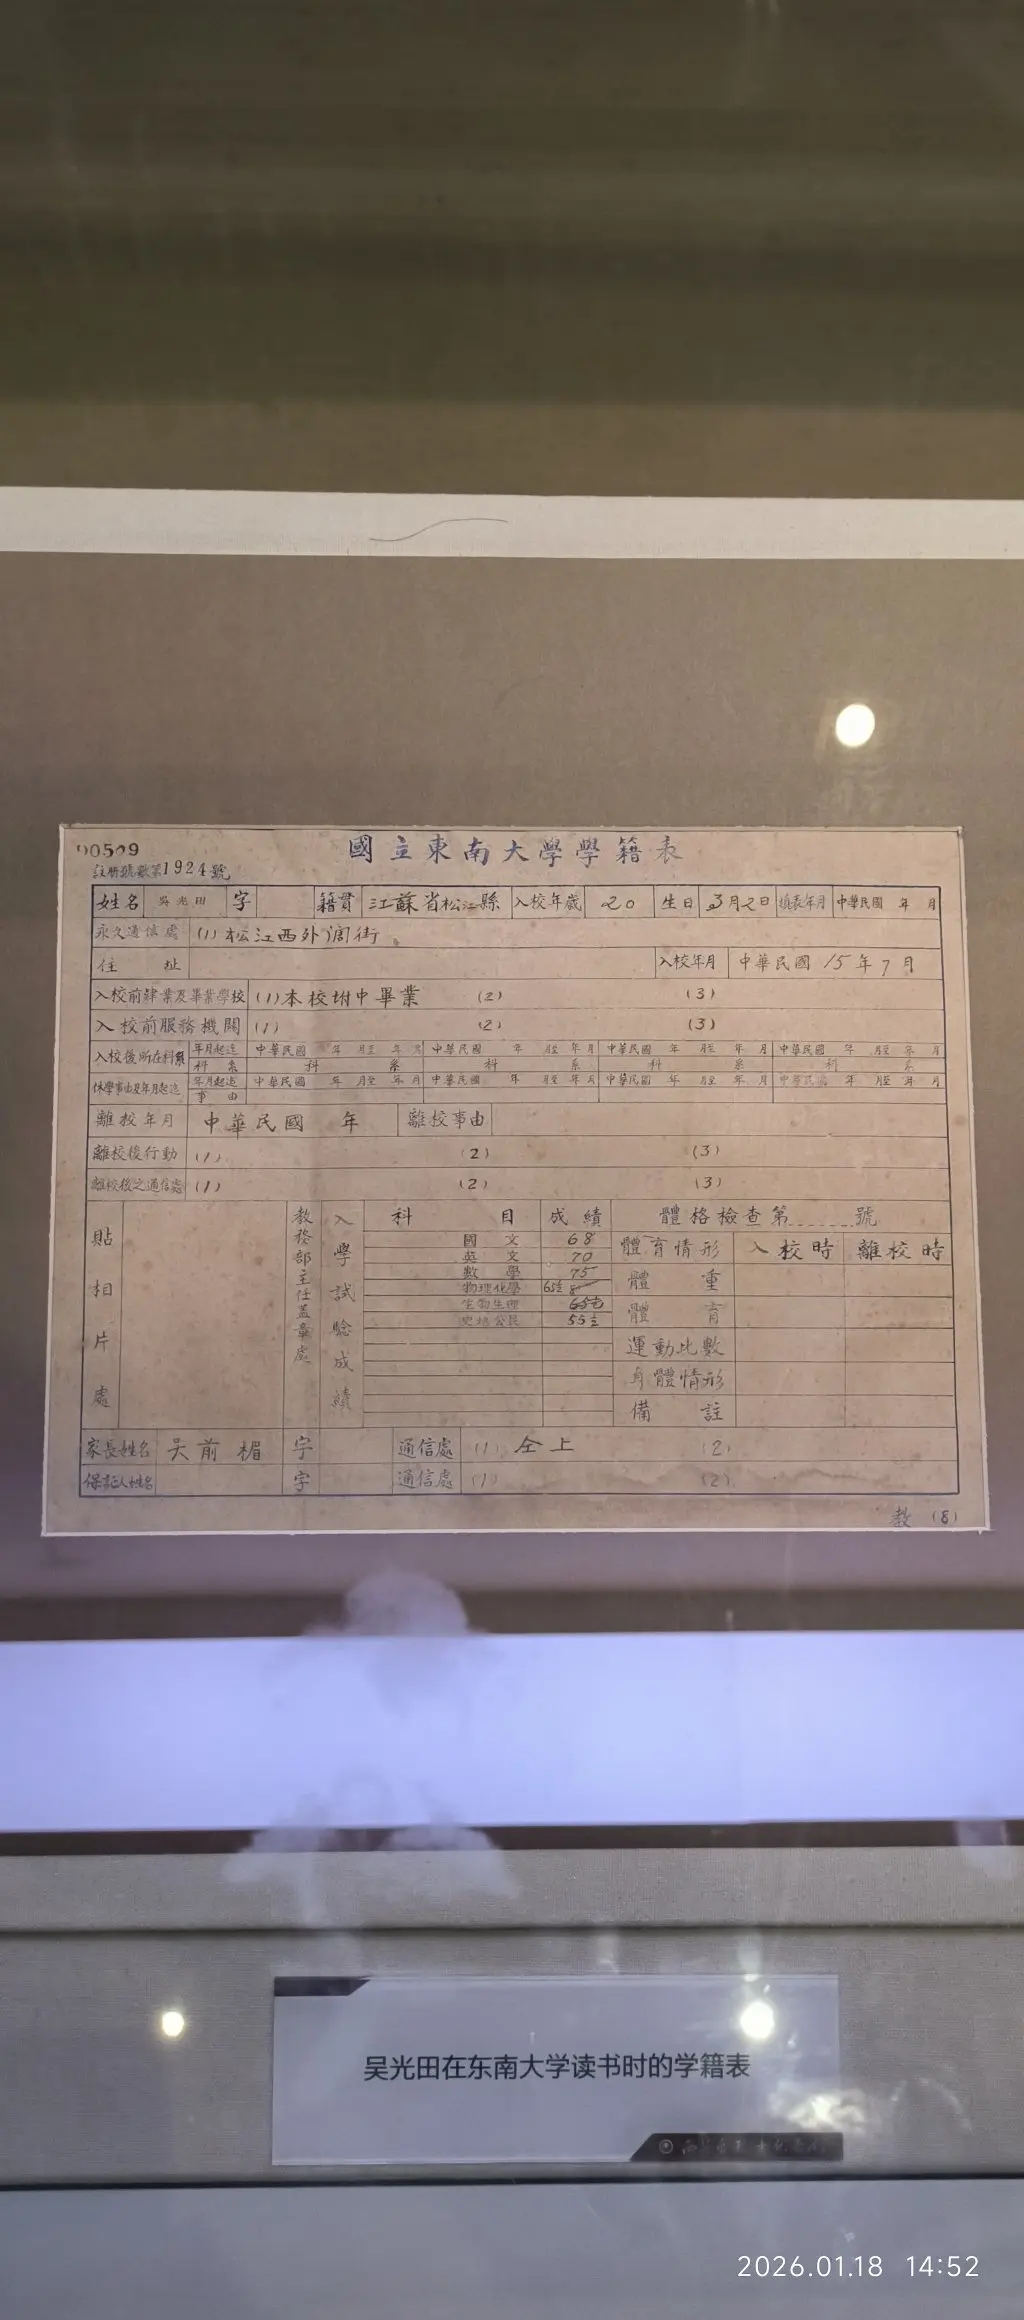 00509
國立東南大學學籍表
註冊號數第1924號
姓名 吳光田 字 籍貫 江蘇省松江縣 入校年歲 20 生日 3月2日 填表年月 中華民國 年 月
永久通信處 (1) 松江西外濶街
住 址 入校年月 中華民國 15年7月
入校前肄業及畢業學校 (1)本校坿中畢業 (2) (3)
入校前服務機關 (1) (2) (3)
入校後所在科系 年月起迄 中華民國 年 月至 年 月 中華民國 年 月至 年 月 中華民國 年 月至 年 月 中華民國 年 月至 年 月
科系 科 系 科 系 科 系 科 系
休學事由及年月起迄 年月起迄 中華民國 年 月至 年 月 中華民國 年 月至 年 月 中華民國 年 月至 年 月 中華民國 年 月至 年 月
事由
離校年月 中華民國 年 離校事由
離校後行動 (1) (2) (3)
離校後之通信處 (1) (2) (3)
貼相片處 教務部主任蓋章處 入學試驗成績 科 目 成績 體格檢查第 號
國文 68 體育情形 入校時 離校時
英文 70
數學 75 體重
物理化學 65
生物生理 65 體育
史地公民 55
運動比數
身體情形
備註
家長姓名 吴前楣 字 通信處 (1) 仝上 (2)
保証人姓名 字 通信處 (1) (2)
教 (8)
吴光田在东南大学读书时的学籍表
2026.01.18 14:52